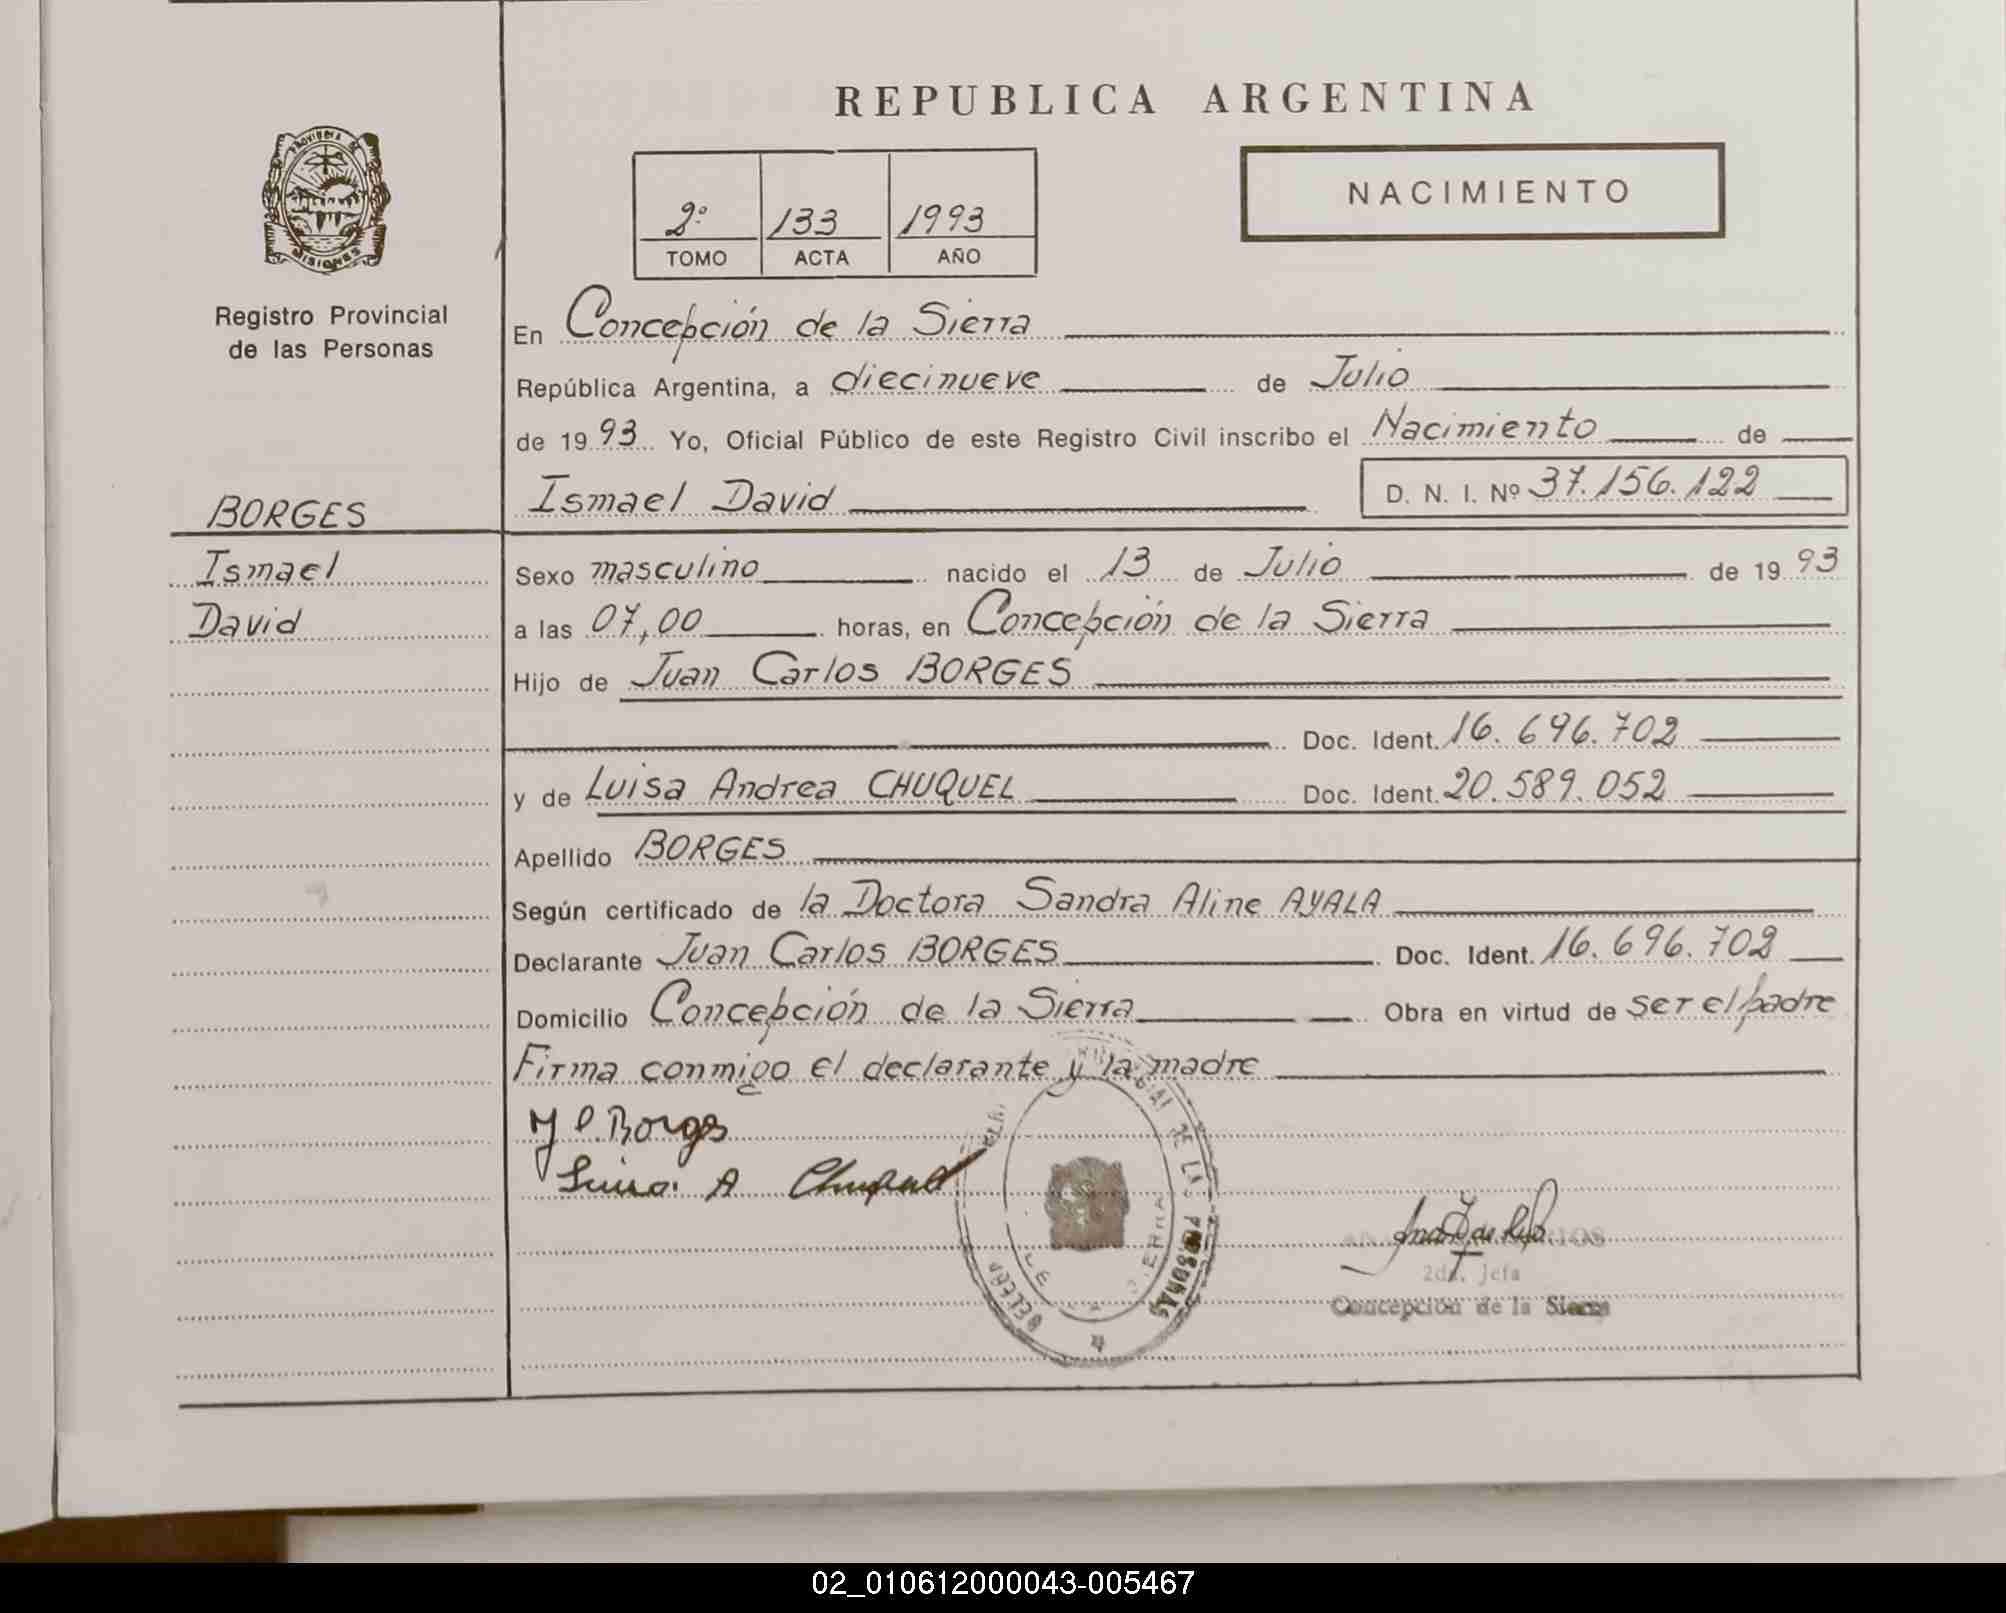 REPUBLICA ARGENTINA
PROVINCIA DE MISIONES
Registro Provincial
de las Personas
NACIMIENTO
2º 133 1993
TOMO ACTA AÑO
En Concepción de la Sierra
República Argentina, a diecinueve de Julio
de 19 93 Yo, Oficial Público de este Registro Civil inscribo el Nacimiento de
BORGES
Ismael David D. N. I. Nº 37.156.122
Ismael
Sexo masculino nacido el 13 de Julio de 19 93
David
a las 07,00 horas, en Concepción de la Sierra
Hijo de Juan Carlos BORGES
Doc. Ident. 16.696.702
y de Luisa Andrea CHUQUEL Doc. Ident. 20.589.052
Apellido BORGES
Según certificado de la Doctora Sandra Aline AYALA
Declarante Juan Carlos BORGES Doc. Ident. 16.696.702
Domicilio Concepción de la Sierra Obra en virtud de ser el padre
Firma conmigo el declarante y la madre
J C. Borges
Luisa A Chuquel
DE LAS PERSONAS
2da. Jefa
Concepción de la Sierra
02_010612000043-005467